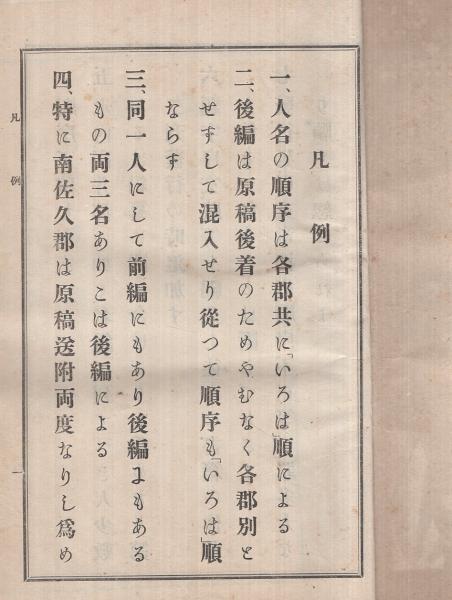 凡例
一、人名の順序は各郡共に「いろは」順による
二、後編は原稿後着のためやむなく各郡別と
せすして混入せり從つて順序も「いろは」順
ならす
三、同一人にして前編にもあり後編にもある
もの両三名ありこは後編による
四、特に南佐久郡は原稿送附両度なりし爲め
凡例
一